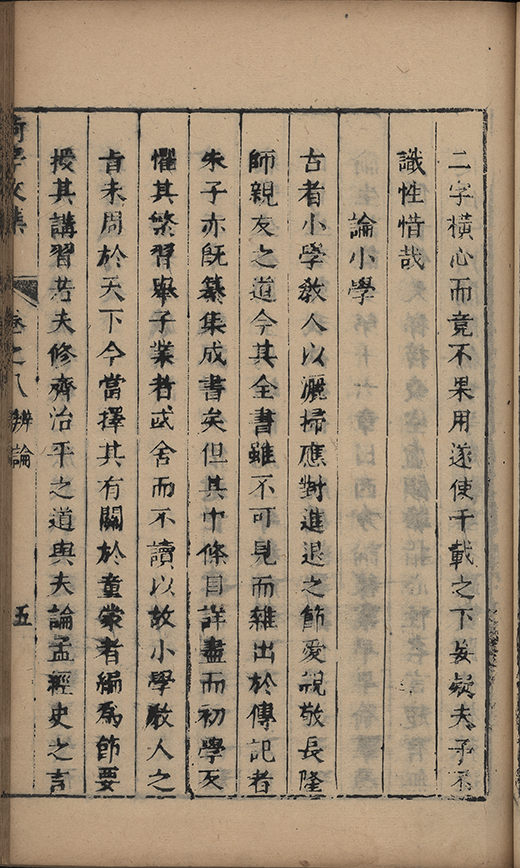 二字橫心而竟不果用遂使千載之下妄疑夫子不
識性惜哉
論小學
古者小學教人以灑掃應對進退之節愛親敬長隆
師親友之道今其全書雖不可見而雜出於傳記者
朱子亦既纂集成書矣但其中條目詳盡而初學又
懼其繁習舉子業者或舍而不讀以故小學教人之
旨未周於天下今當擇其有關於童蒙者編為節要
授其講習若夫修齊治平之道與夫論孟經史之言
文集 卷之八 辨論 五